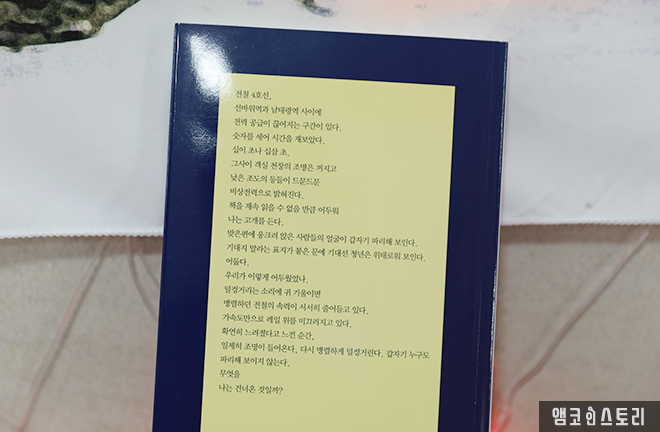 전철 4호선,
선바위역과 남태령역 사이에
전력 공급이 끊어지는 구간이 있다.
숫자를 세어 시간을 재보았다.
십이 초나 십삼 초.
그사이 객실 천장의 조명은 꺼지고
낮은 조도의 등들이 드문드문
비상전력으로 밝혀진다.
책을 계속 읽을 수 없을 만큼 어두워
나는 고개를 든다.
맞은편에 웅크려 앉은 사람들의 얼굴이 갑자기 파리해 보인다.
기대지 말라는 표지가 붙은 문에 기대선 청년은 위태로워 보인다.
어둡다.
우리가 이렇게 어두웠었나.
덜컹거리는 소리에 귀 기울이면
맹렬하던 전철의 속력이 서서히 줄어들고 있다.
가속도만으로 레일 위를 미끄러지고 있다.
확연히 느려졌다고 느낀 순간,
일제히 조명이 들어온다, 다시 맹렬하게 덜컹거린다. 갑자기 누구도
파리해 보이지 않는다.
무엇을
나는 건너온 것일까?
앰코인스토리